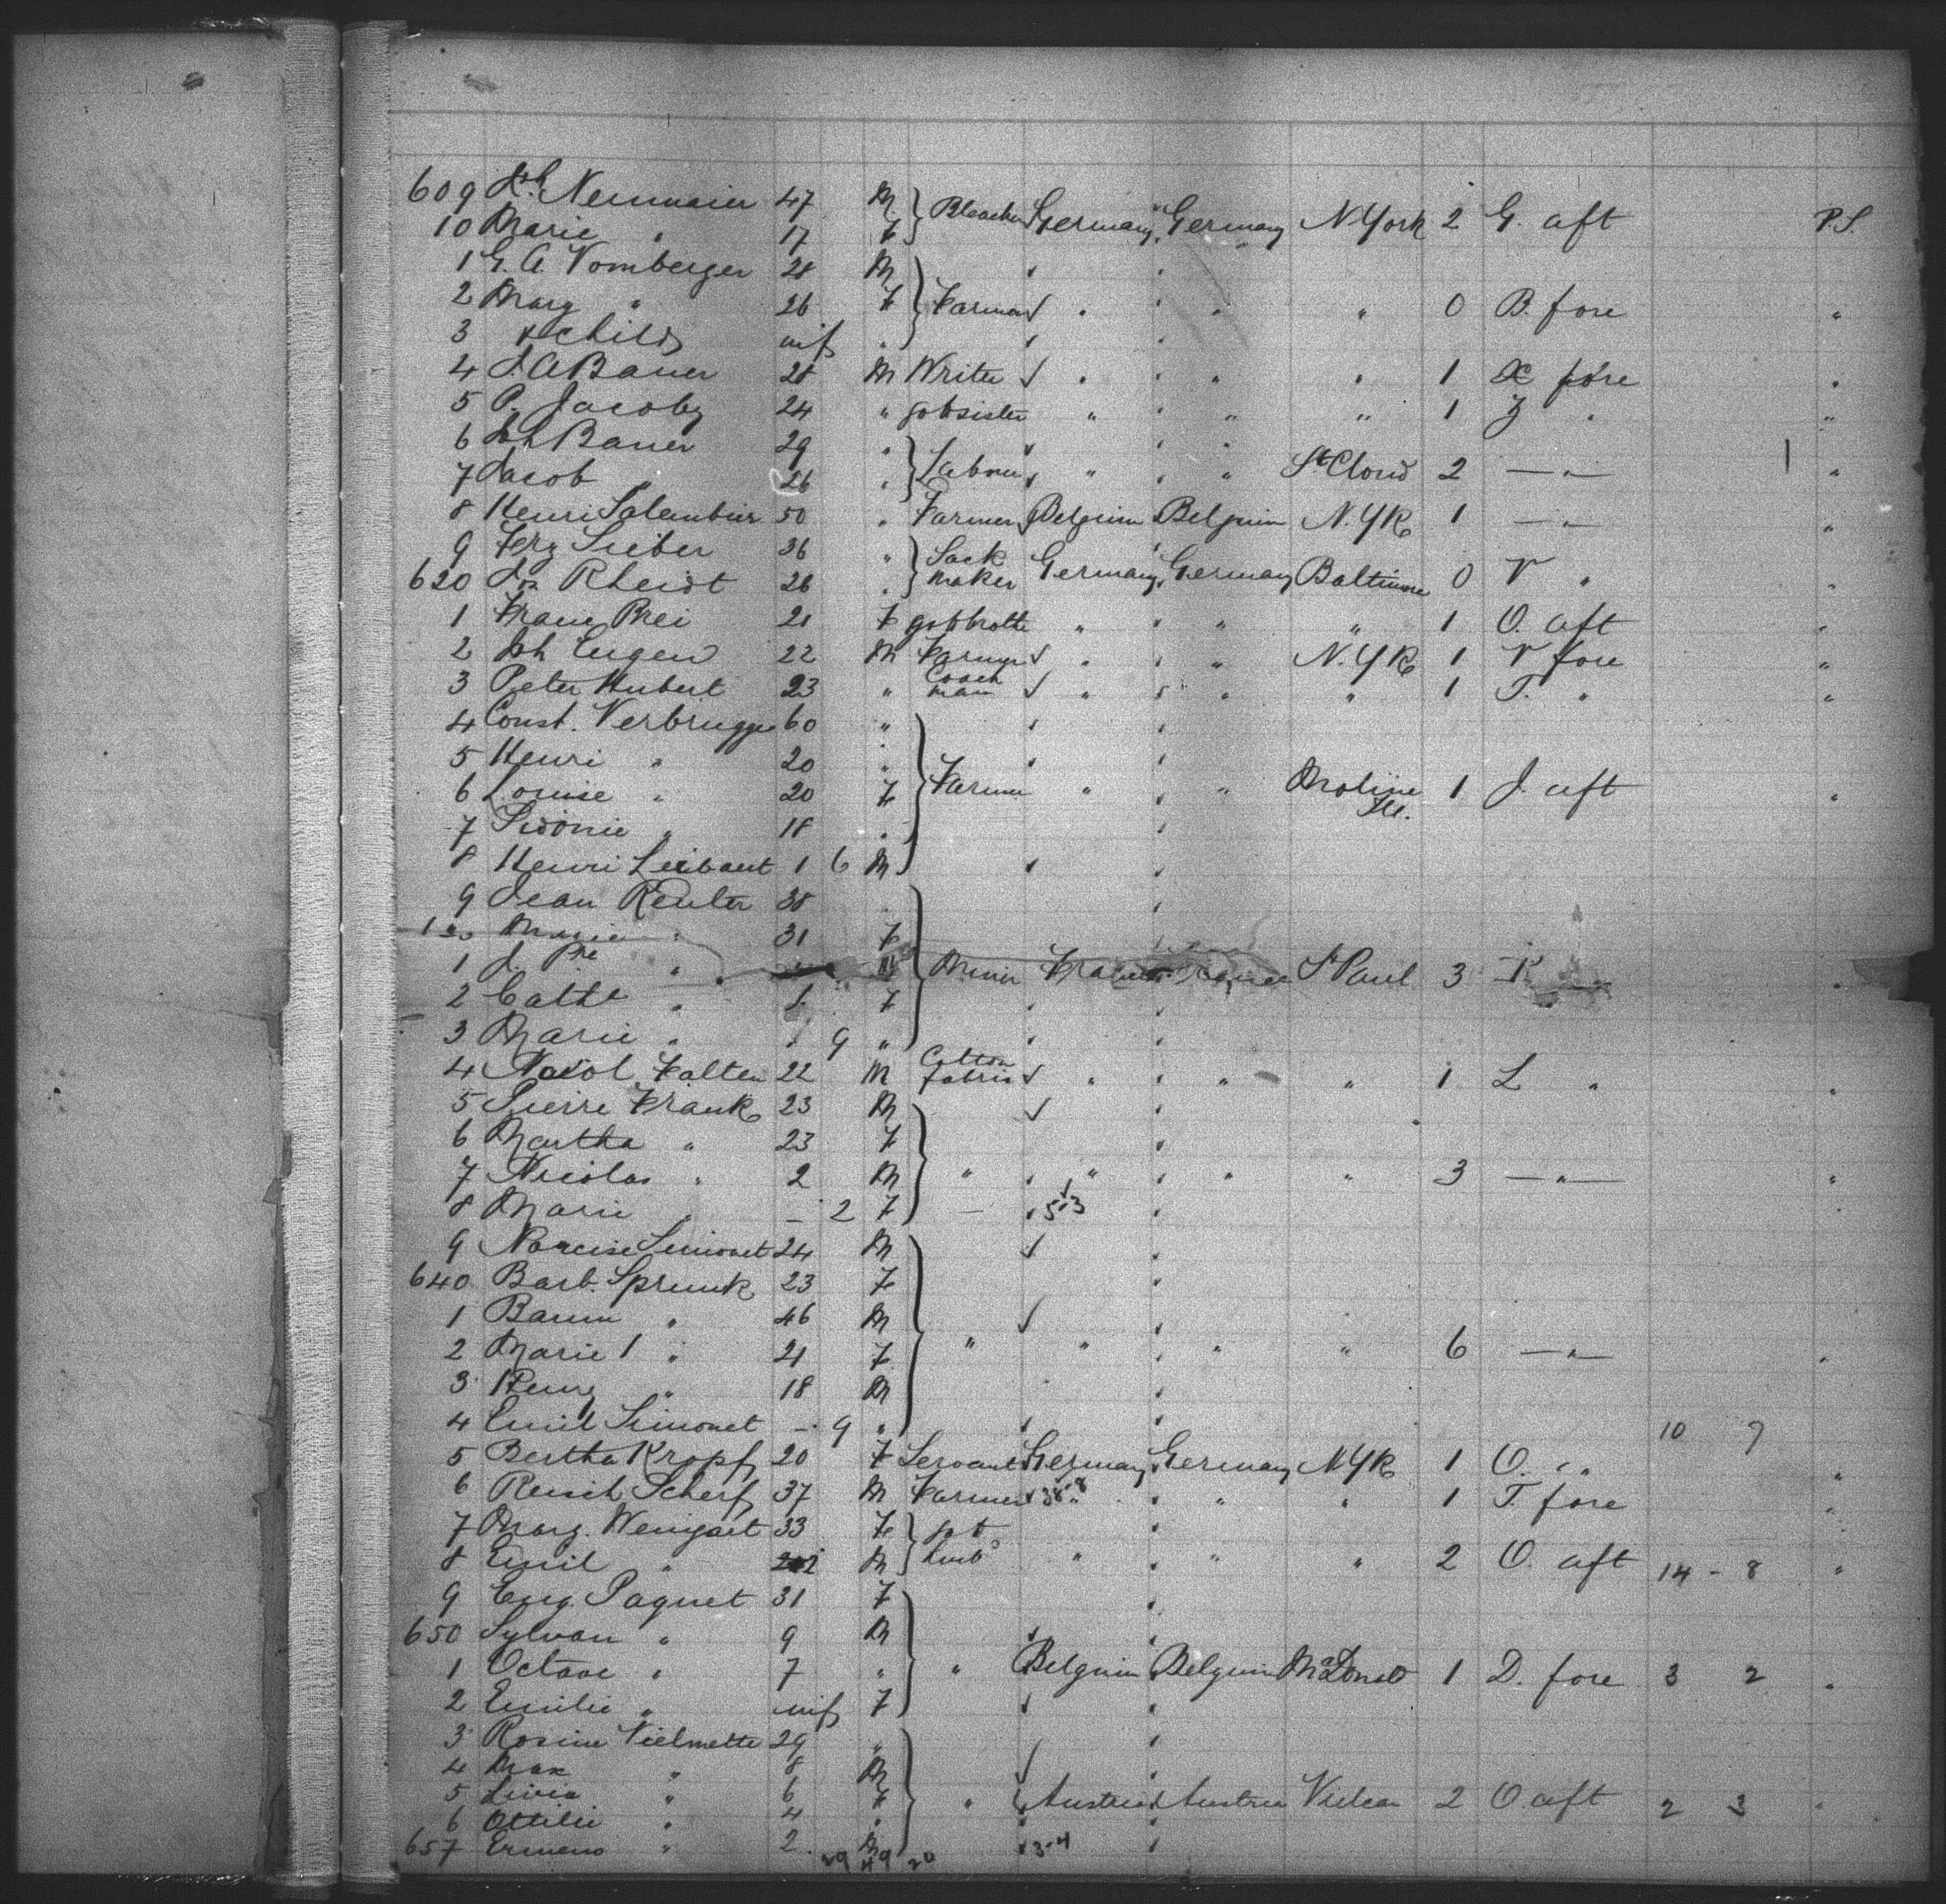 609 Jos. Neumaier 47 M Bleacher Germany Germany N York 2 G. aft P.S.
10 Marie " 17 F
1 G. A. Vomberger 28 M
2 Marg " 26 F Farmer " " " " 0 B. fore "
3 & child inf "
4 J A Bauer 28 M Writer " " " " 1 X fore "
5 P. Jacoby 24 " " " " " 1 Z " "
6 Joh Bauer 29 "
7 Jacob " 26 " Labourer " " " St Cloud 2 — " — "
8 Henri Salembier 50 " Farmer Belgium Belgium N.YK 1 — " — "
9 Frz Lieber 36 " Sack
620 Jos Rheidt 26 " maker Germany Germany Baltimore 0 V " "
1 Franz Prei 21 F " " " " 1 O. aft "
2 Joh Eugen 22 M Farmer " " " N.YK 1 V fore "
3 Peter Hubert 23 " Coach man " " " " 1 T. " "
4 Const. Verbrugge 60 "
5 Henri " 20 "
6 Louise " 20 F Farmer " " " Moline Ill. 1 J. aft "
7 Sidonie " 18 "
8 Henri Leibaut 1 6 M
9 Jean Reuter 38 "
Marie " 31 F
1 J. Pre " M Miner France France St Paul 3 "
2 Cathe " F
3 Marie " 9 "
4 Nicol Falten 22 M Cotton fabric " " " " 1 L " "
5 Pierre Frank 23 M
6 Martha " 23 F
7 Nicolas " 2 M " " " " " 3 — " — "
8 Marie " – 2 F —
9 Narcise Simonet 24 M
640 Barb. Sprunk 23 F
1 " 46 M
2 Marie 1 " 21 F " " " " 6 — " — "
3 Remy " 18 M
4 Emil Simonet – 9 " 10 9
5 Bertha Kropf 20 F Servant Germany Germany N YK 1 O. " "
6 Scherf 37 M Farmer " " " 1 T. fore "
7 Marg. Weingart 33 F
8 Emil " M " " " " 2 O. aft 14 - 8 "
9 Eug. Paquet 31 F
650 Sylvan " 9 M
1 Octave " 7 " " Belgium Belgium McDonald 1 D. fore 3 2 "
2 Emilie " inf F
3 Rosine Vielmette 29 "
4 Max " 8 M
5 Livia " 6 F " Austria Austria Vulcan 2 O. aft 2 3 "
6 Ottilie " 4 "
657 " 2 M 3-4
29 49 20